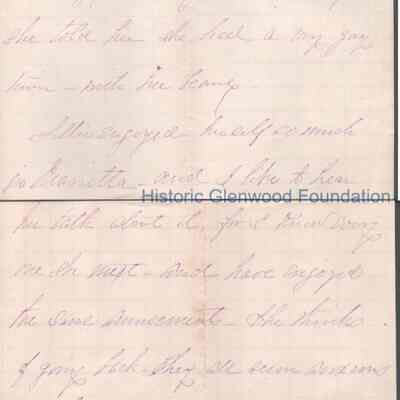 she told her she had a very gay
time - with her beaux
Ettie enjoyed herself so much
in Marietta - and I like to hear
Historic Glenwood Foundation
her talk about it, for I know every
one she met - and have enjoyed
the same amusements - She thinks
of going back - they all seem anxious